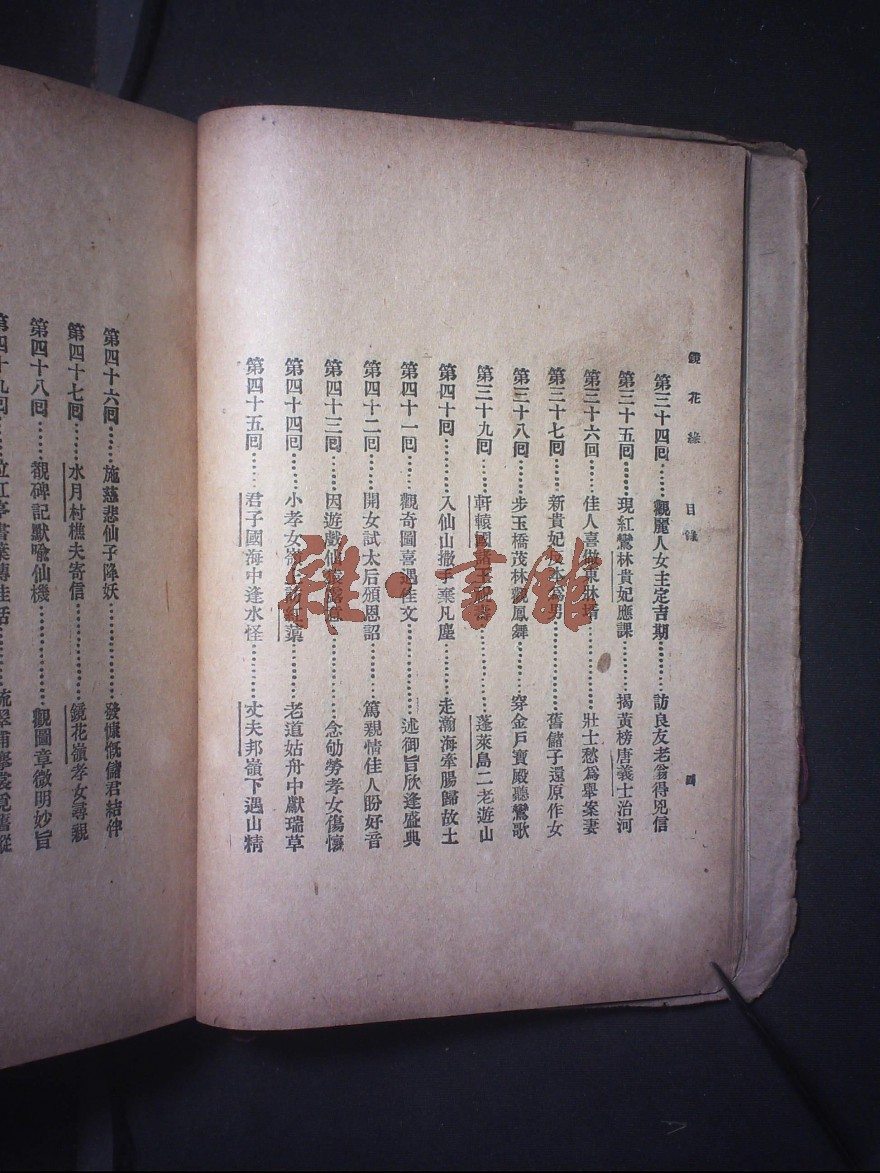 鏡花緣 目錄 四
第三十四囘………觀麗人女主定吉期………訪良友老翁得兇信
第三十五囘………現紅鸞林貴妃應課………揭黃榜唐義士治河
第三十六囘………佳人喜做東牀壻………壯士愁爲舉案妻
第三十七囘………新貴妃反本爲男………舊儲子還原作女
第三十八囘………步玉橋茂林觀鳳舞………穿金戶寶殿聽鸞歌
第三十九囘………軒轅國諸王祝壽………蓬萊島二老遊山
第四十囘………入仙山撒手棄凡塵………走瀚海牽腸歸故土
第四十一囘………觀奇圖喜遇佳文………述御旨欣逢盛典
第四十二囘………開女試太后頒恩詔………篤親情佳人盼好音
第四十三囘………因遊戲仙猿露意………念劬勞孝女傷懷
第四十四囘………小孝女嶺上訪紅蕖………老道姑舟中獻瑞草
第四十五囘………君子國海中逢水怪………丈夫邦嶺下遇山精
第四十六囘………施慈悲仙子降妖………發慷慨儲君結伴
第四十七囘………水月村樵夫寄信………鏡花嶺孝女尋親
第四十八囘………覩碑記默喻仙機………觀圖章微明妙旨
雜·書館